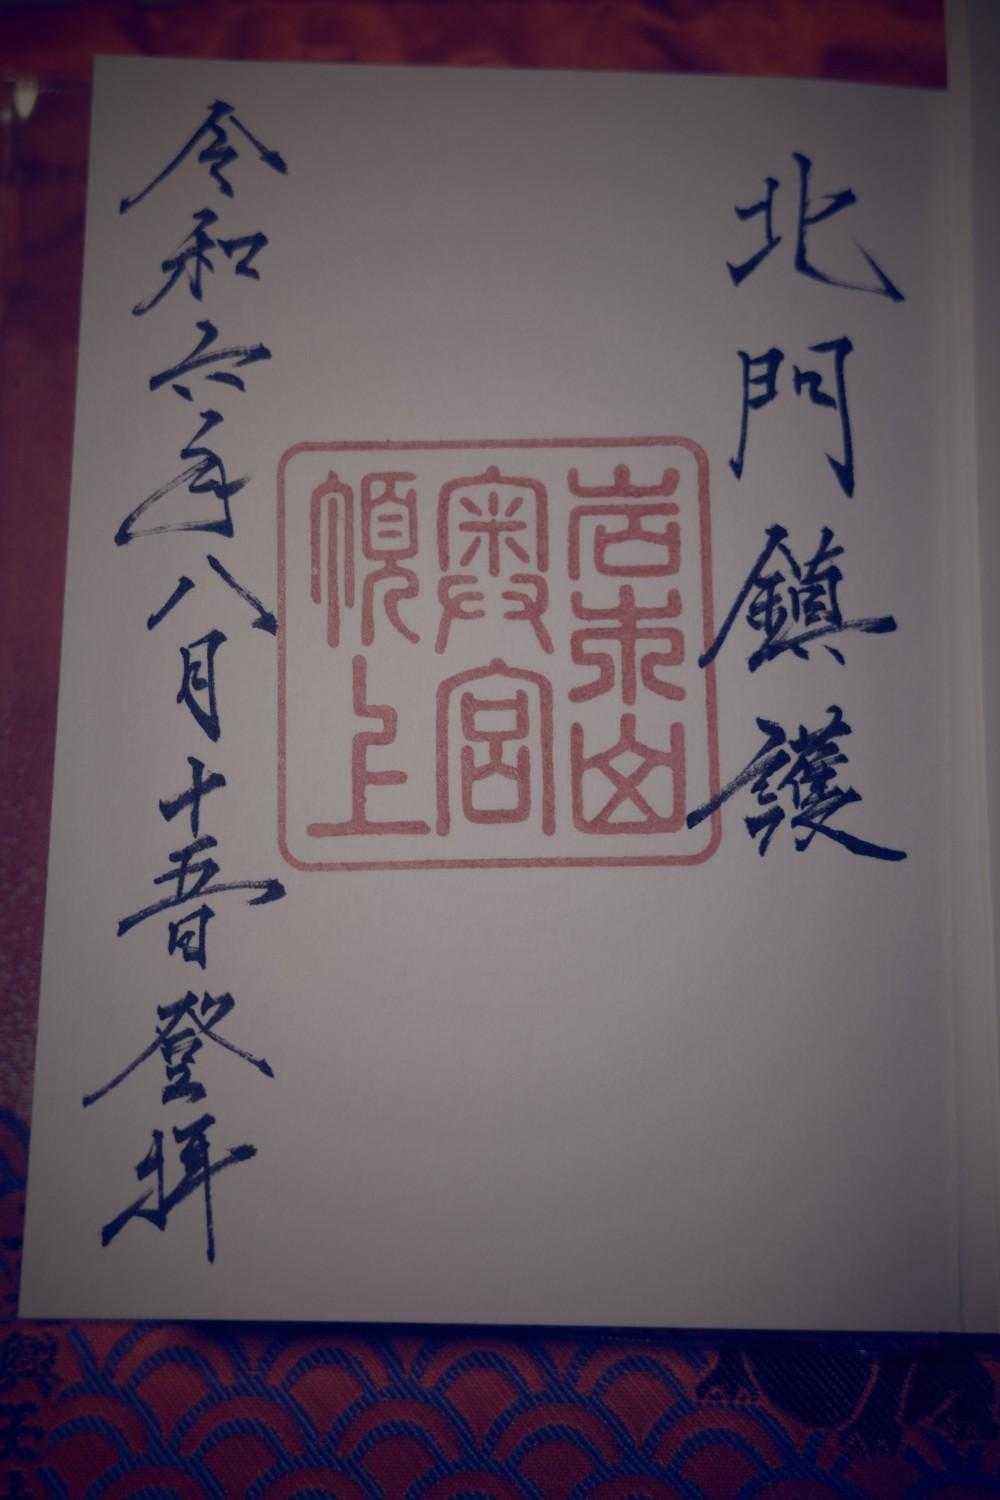 北門鎮護
岩木山
奥宮
頂上
令和六年八月十五日登拝
興玉